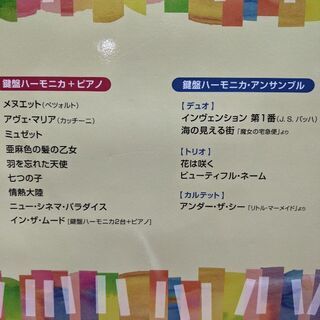 鍵盤ハーモニカ＋ピアノ
メヌエット(ペツォルト)
アヴェ・マリア(カッチーニ)
ミュゼット
亜麻色の髪の乙女
羽を忘れた天使
七つの子
情熱大陸
ニュー・シネマ・パラダイス
イン・ザ・ムード[鍵盤ハーモニカ2台＋ピアノ]
鍵盤ハーモニカ・アンサンブル
【デュオ】
インヴェンション 第1番(J.S.バッハ)
海の見える街「魔女の宅急便」より
【トリオ】
花は咲く
ビューティフル・ネーム
【カルテット】
アンダー・ザ・シー「リトル・マーメイド」より